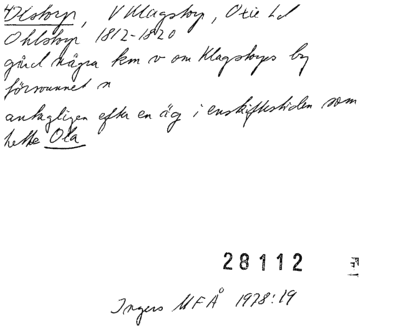 †Olstorp, V Klagstorp, Oxie hd
Ohlstorp 1812-1820
gård några km v om Klagstorps by
försvunnet n
antagligen efter en äg i enskiftestiden som
hette Ola
28112
Ingers MFÅ 1978:19